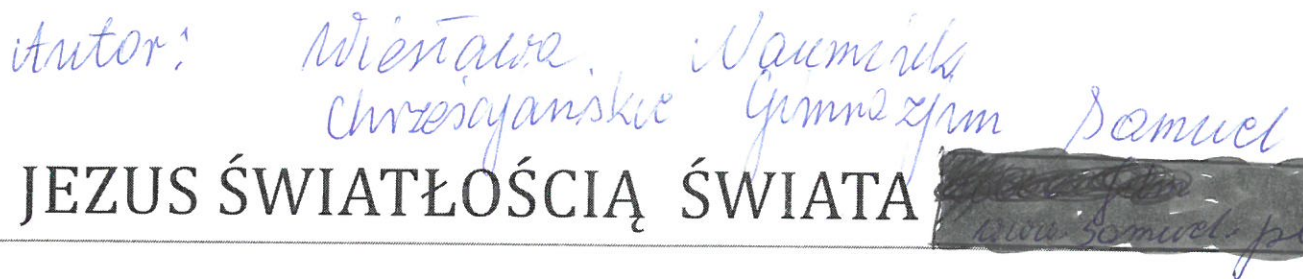 Autor: Wiesława Naumiuk
Chrześcijańskie Gimnazjum Samuel
JEZUS ŚWIATŁOŚCIĄ ŚWIATA
www.samuel.pl